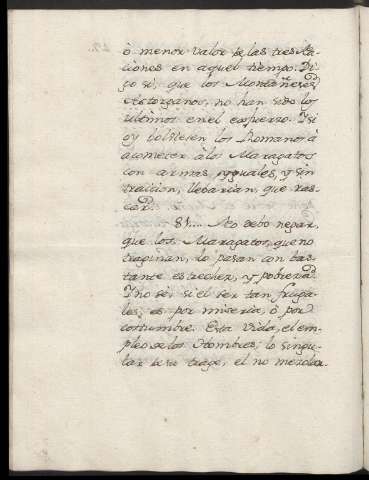 ò menor valor de las tres Na-
ciones en aquel tiempo. Di-
go si, que los Montañeses
Astorganos, no han sido los
ultimos en el esfuerzo. Y si
oy bolviesen los Romanos à
acometer à los Maragatos
con armas yguales, y sin
traicion, llevarian, que ras-
car.
81.... No debo negar,
que los Maragatos, que no
traginan, lo pasan con bas-
tante estrechez, y pobreza.
Y no sè, si el ser tan fruga-
les, es por miseria, ò por
costumbre. Esta Vida, el em-
pleo de los Hombres; lo singu-
lar de su trage, el no mezclar-